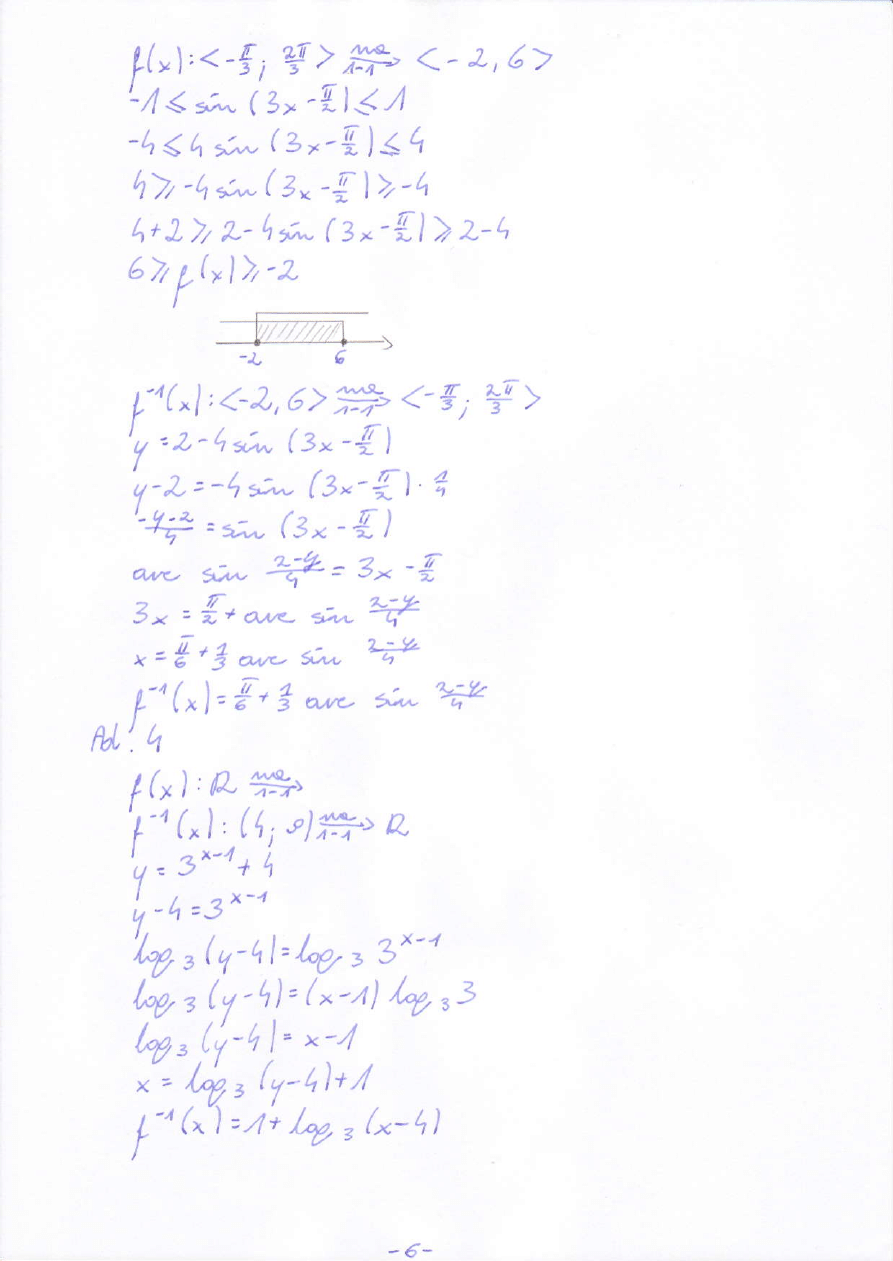 f(x): <-π/3; 2π/3> na/1-1→ <-2, 6>
-1 ≤ sin (3x - π/2) ≤ 1
-4 ≤ 4 sin (3x - π/2) ≤ 4
4 ≥ -4 sin (3x - π/2) ≥ -4
4+2 ≥ 2-4 sin (3x - π/2) ≥ 2-4
6 ≥ f(x) ≥ -2
-2 6
f⁻¹(x): <-2, 6> na/1-1→ <-π/3; 2π/3>
y = 2-4 sin (3x - π/2)
y-2 = -4 sin (3x - π/2) · 1/4
-y-2/4 = sin (3x - π/2)
arc sin 2-y/4 = 3x - π/2
3x = π/2 + arc sin 2-y/4
x = π/6 + 1/3 arc sin 2-y/4
f⁻¹(x) = π/6 + 1/3 arc sin 2-y/4
Ad. 4
f(x): R na/1-1→
f⁻¹(x): (4; ) na/1-1→ R
y = 3^(x-1) + 4
y-4 = 3^(x-1)
log₃ (y-4) = log₃ 3^(x-1)
log₃ (y-4) = (x-1) log₃ 3
log₃ (y-4) = x-1
x = log₃ (y-4)+1
f⁻¹(x) = 1+ log₃ (x-4)
-6-